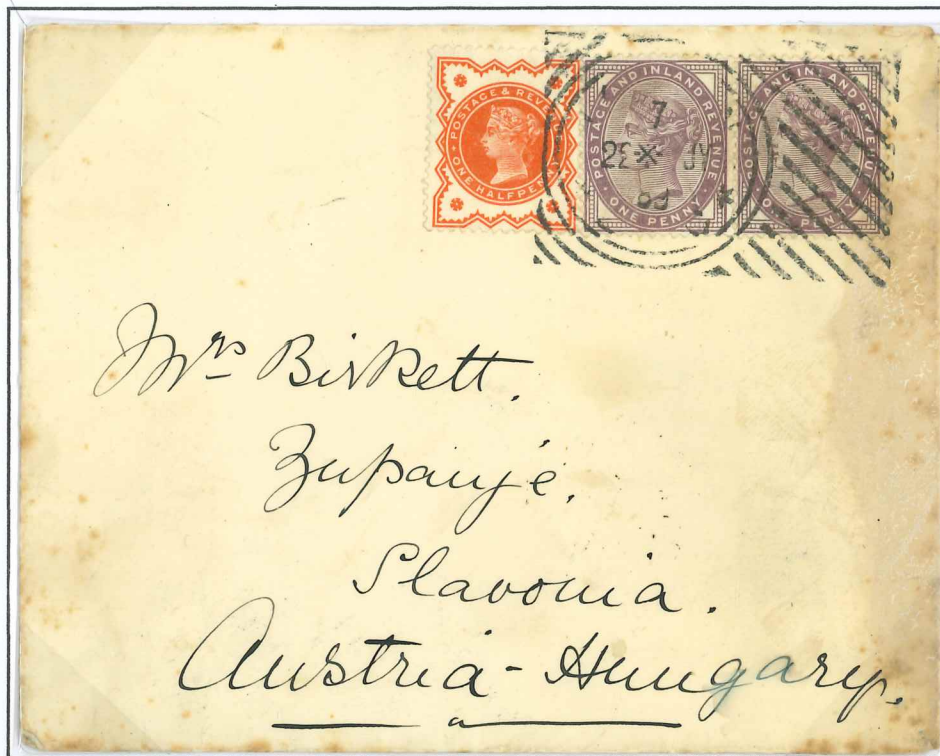 POSTAGE & REVENUE
ONE HALFPENNY
POSTAGE AND INLAND REVENUE
ONE PENNY
POSTAGE AND INLAND REVENUE
ONE PENNY
Mrs Birkett.
Zupanje.
Slavonia.
Austria-Hungary.